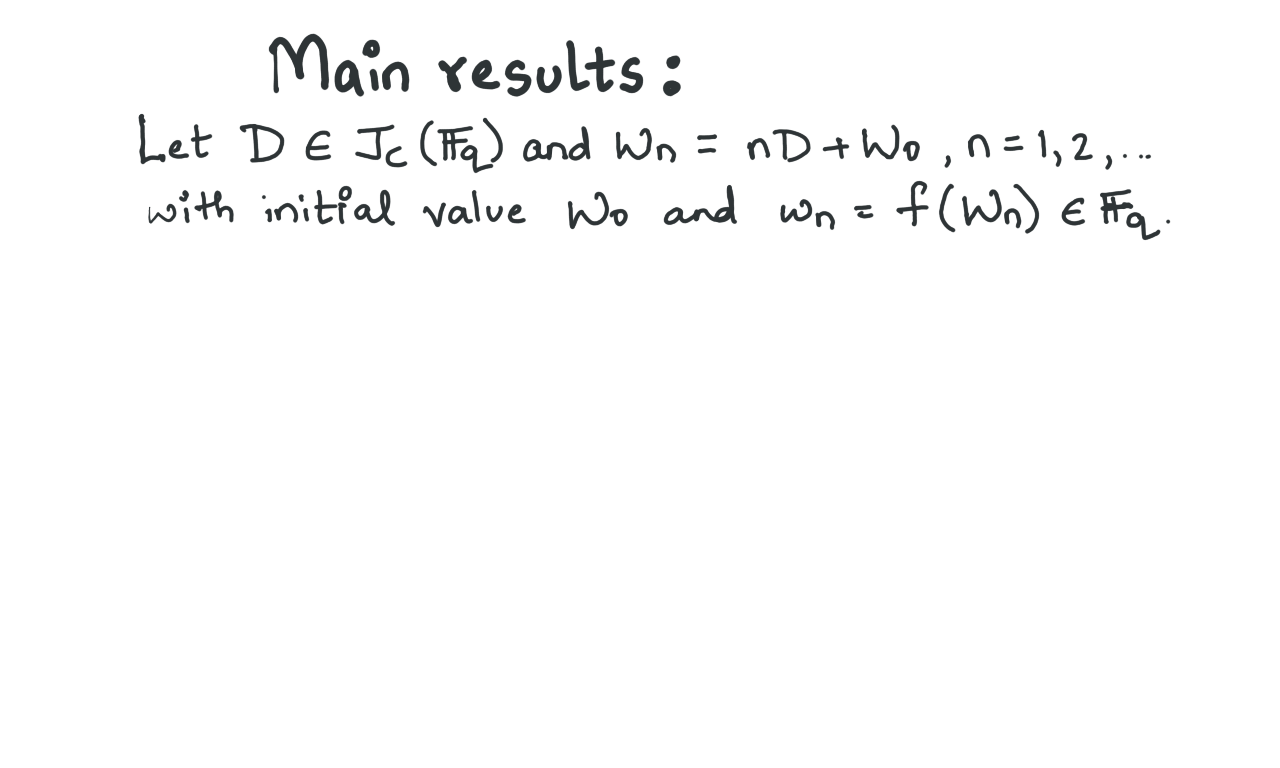 Main results:
Let D ∈ J_C(𝔽_q) and W_n = nD + W_0, n = 1, 2, ...
with initial value W_0 and w_n = f(W_n) ∈ 𝔽_q.